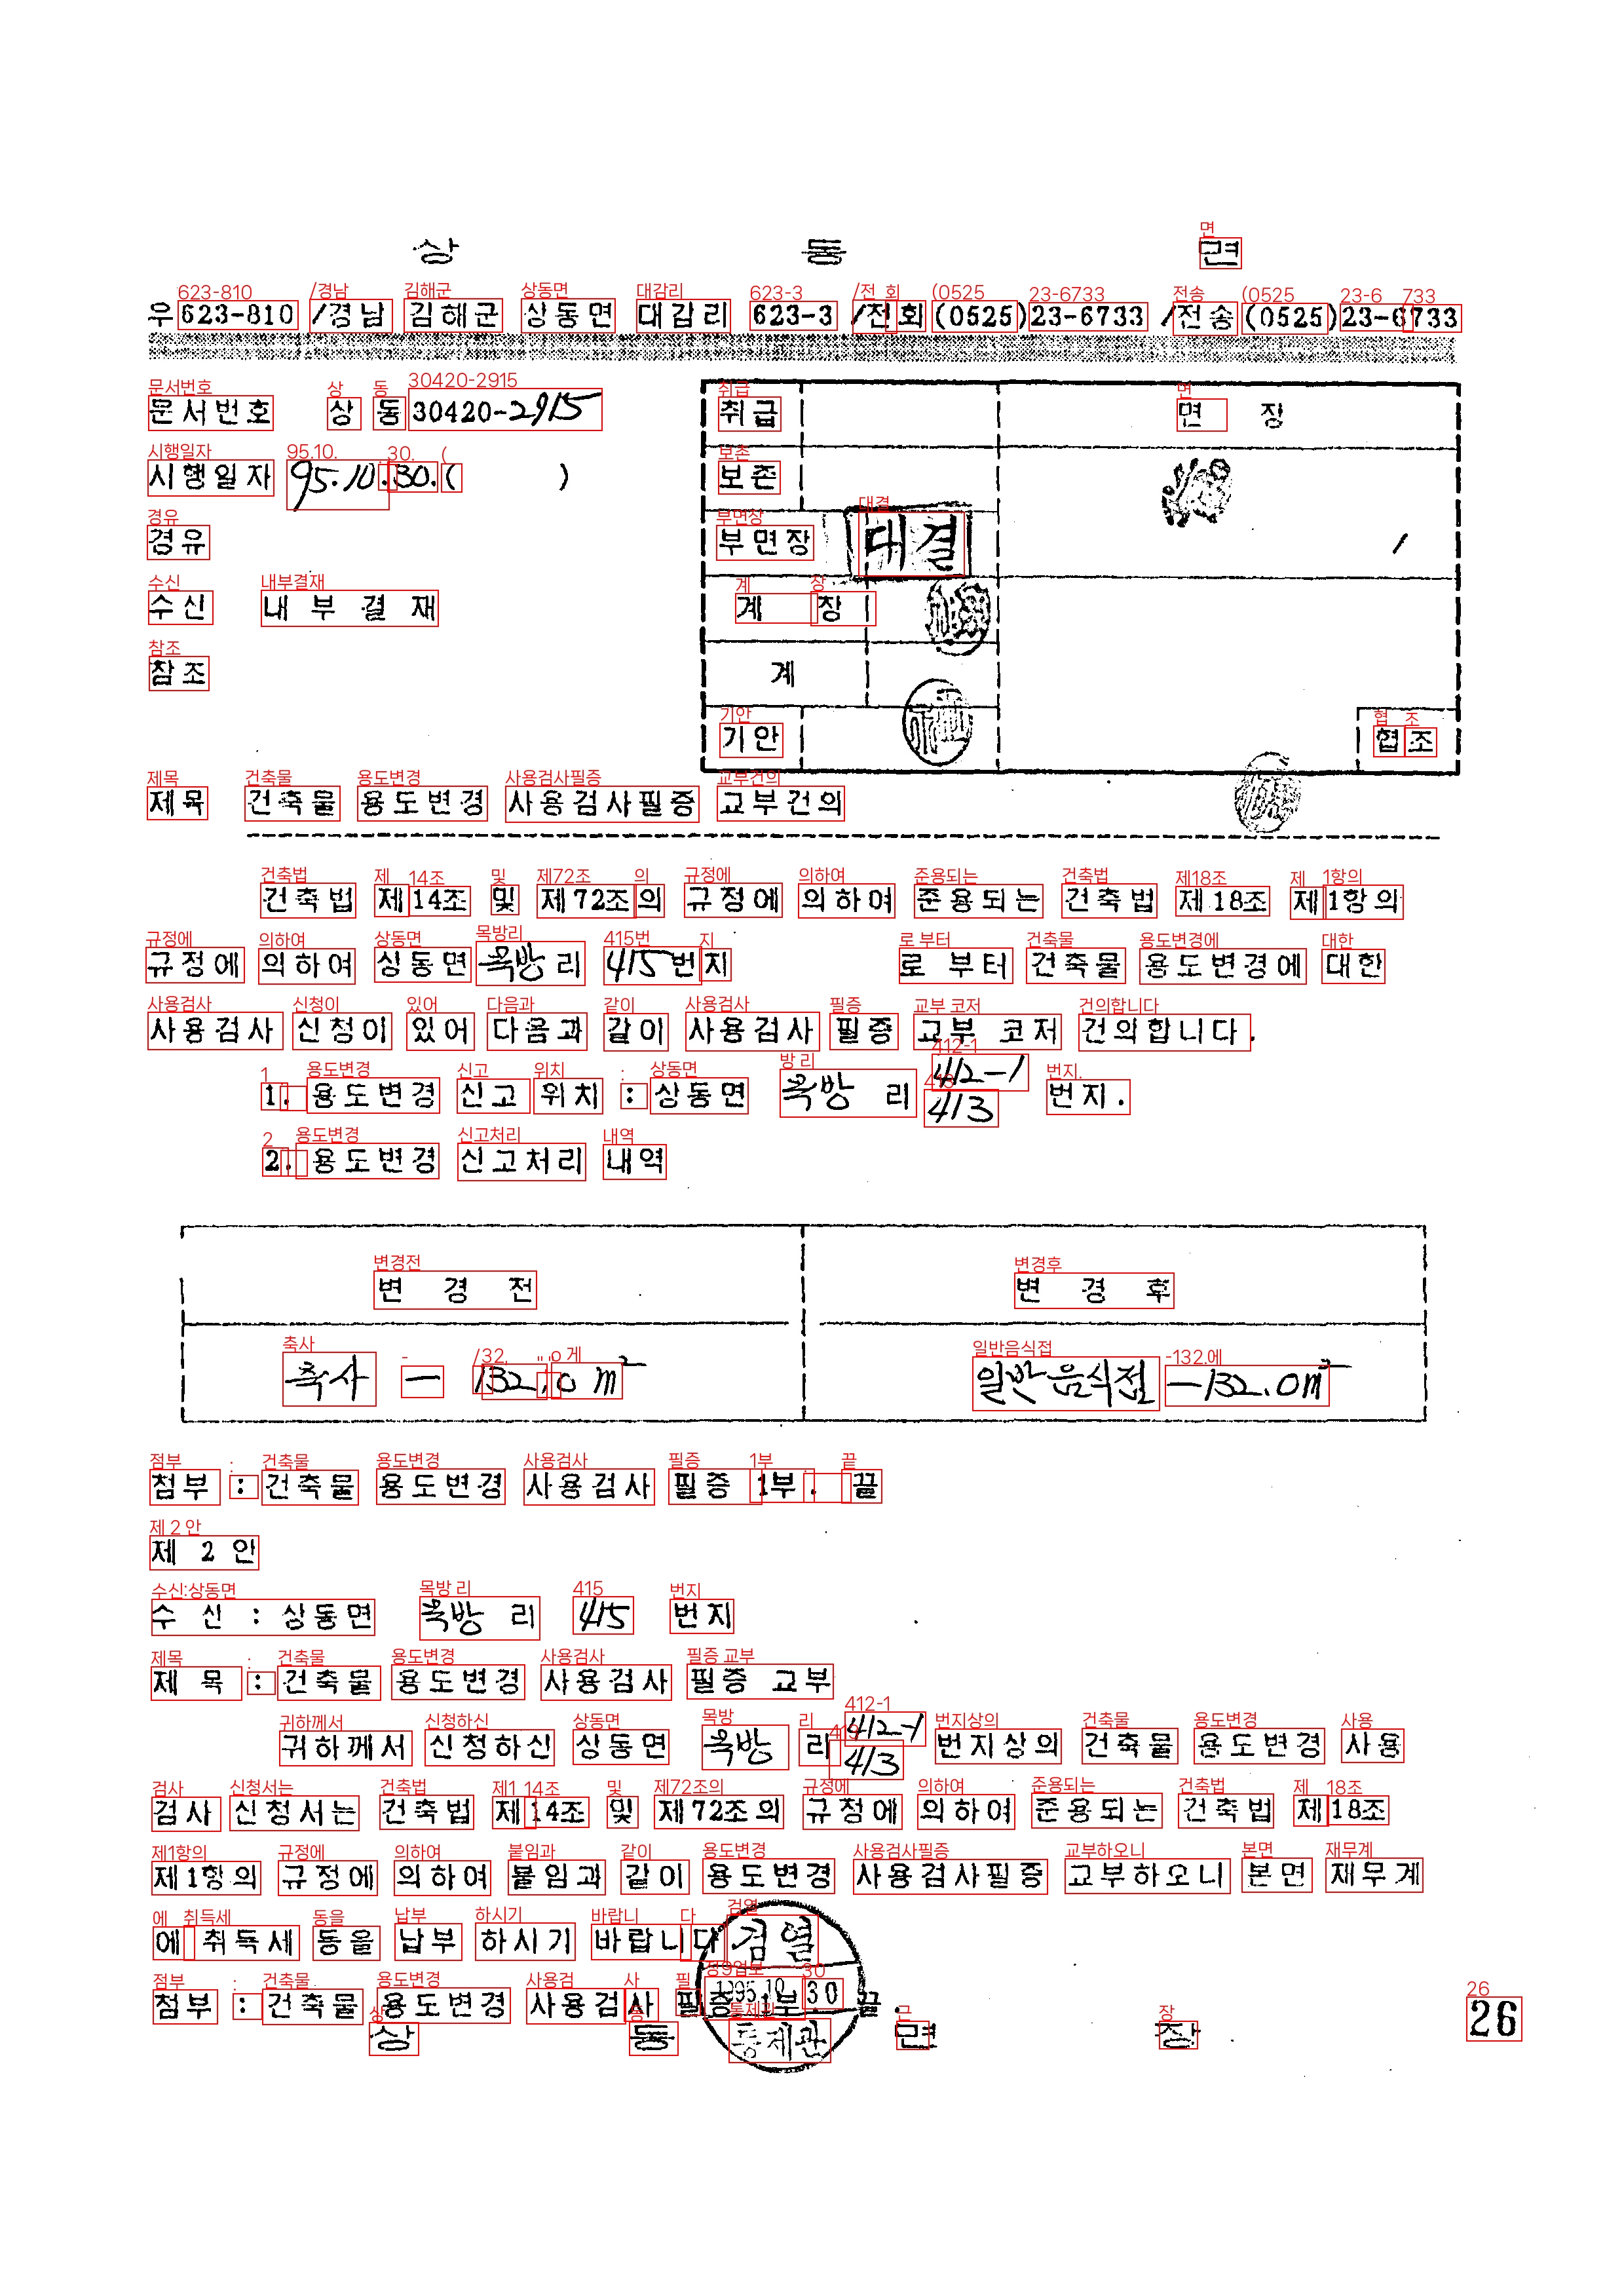 상 동 면
우 623-810 /경남 김해군 상동면 대감리 623-3 /전화 (0525)23-6733 /전송 (0525)23-6733
문서번호 상 동 30420-2915
시행일자 95.10.30. ( )
경유
수신 내 부 결 재
참조
취급 면 장
보존
부면장 대결
계 장
계
기안 협조
제목 건축물 용도변경 사용검사필증 교부건의
건축법 제14조 및 제72조의 규정에 의하여 준용되는 건축법 제18조 제1항의
규정에 의하여 상동면 묵방리 415번지 로 부터 건축물 용도변경에 대한
사용검사 신청이 있어 다음과 같이 사용검사 필증 교부 코저 건의합니다.
1. 용도변경 신고 위치 : 상동면 묵방 리 412-1 413 번지.
2. 용도변경 신고처리 내역
변 경 전 변 경 후
축사 — 132.0 m² 일반음식점 — 132.0m²
첨부 : 건축물 용도변경 사용검사 필증 1부. 끝
제 2 안
수 신 : 상동면 묵방 리 415 번지
제 목 : 건축물 용도변경 사용검사 필증 교부
귀하께서 신청하신 상동면 묵방 리 412-1 413 번지상의 건축물 용도변경 사용
검사 신청서는 건축법 제14조 및 제72조의 규정에 의하여 준용되는 건축법 제18조
제1항의 규정에 의하여 붙임과 같이 용도변경 사용검사필증 교부하오니 본면 재무계
에 취득세 등을 납부 하시기 바랍니다
검열
1995.10.30
통제관
첨부 : 건축물 용도변경 사용검사 필증 1부. 끝.
상 동 면 장
26